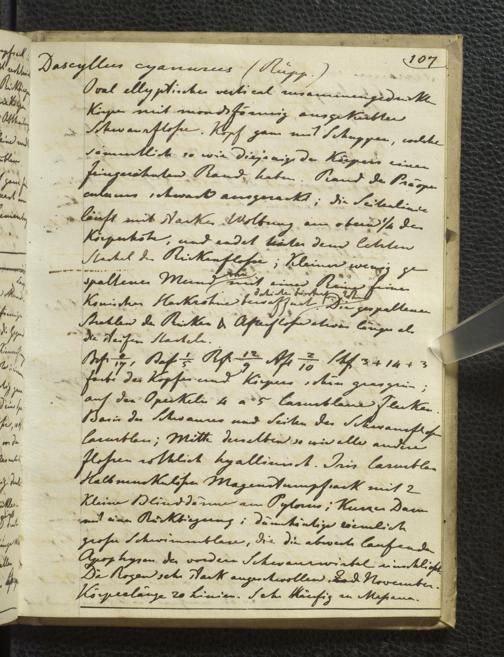 107
Dascyllus cyanureus (Rüpp.)
Oval elliptischer vertical zusammengedrückte
Körper mit mondförmig ausgekerbter
Schwanzflosse. Kopf ganz mit Schuppen, welche
sämmtlich so wie diejenige des Körpers einen
feingezähnten Rand haben. Rand des Präoper
culums schwach ausgezackt; die Seitenlinie
läuft mit starker Wölbung am obern 1/4 der
Körperhöhe, und endet unter dem letzten
Stachel der Rückenflosse; Kleiner wenig ge
spaltener Mund mit eine Reihe feiner
Konischen Hackezähne bewaffnet. Die gespaltenen
Strahlen der Rücken & Afterflosse etwas länger als
die steifen Stacheln.
Brf. 2/17, Bcf 1/5 Rf. 12/9 Aff 2/10 Schf 3 + 14 + 3
Farbe des Kopfes und Körpers schön grasgrün;
auf den Operkeln 4 a 5 lasurblaue Flecken.
Basis des Schwanzes und Seiten der Schwanzflosse
lasurblau; Mitte derselben so wie alle andere
Flossen röthlich hyallinisch. Iris lasurblau
Halbmuskulöser Magenstumpfsack mit 2
kleine Blinddärme am Pylorus; kurzer Darm
mit eine Rückbiegung; dünnhäutige ziemlich
große Schwimmblase, die die abwärts laufenden
Apophysen der vordern Schwanzwirbel einschließt
Die Rogen sehr stark angeschwollen End November.
Körperlänge 20 Linien. Sehr Häufig in Messina.